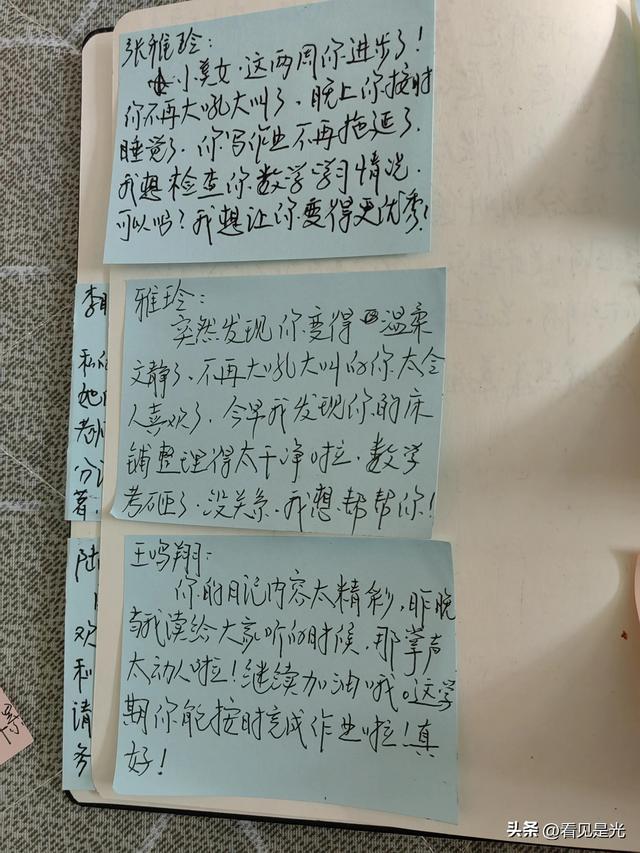 张雅玲：
小美女，这两周你进步了！
你不再大吼大叫了，晚上你按时
睡觉了，你写作业不再拖延了，
我想检查你数学学习情况，
可以吗？我想让你变得更优秀！
雅玲：
突然发现你变得温柔
文静了，不再大吼大叫的你太令
人喜欢了，今早我发现你的床
铺整理得太干净啦，数学
考砸了，没关系，我想帮帮你！
王鸣翔：
你的日记内容太精彩，昨晚
当我读给大家听的时候，那掌声
太动人啦！继续加油哦。这学
期你能按时完成作业啦！真
好！
李
私
她
老师
分
著，
陆
欢
和
请
务
头条 @看见是光